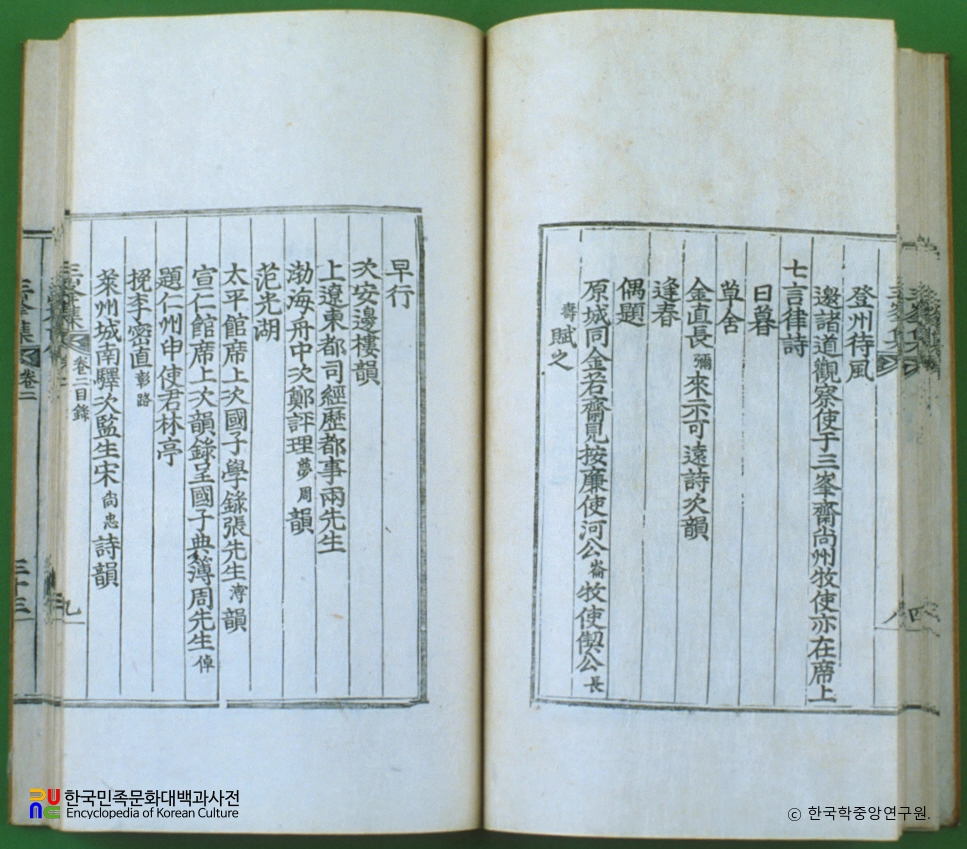 登州待風
邀諸道觀察使于三峯齋尚州牧使亦在席上
七言律詩
日暮
草舍
金直長彌來示可遠詩次韻
逢春
偶題
原城同金若齋見按廉使河公崙牧使偰公長
壽賦之
早行
次安邊樓韻
上遼東都司經歷都事兩先生
渤海舟中次鄭評理夢周韻
范光湖
太平館席上次國子學錄張先生溥韻
宣仁館席上次韻錄呈國子典簿周先生倬
題仁州申使君林亭
挽李密直彰路
萊州城南驛次監生宋尚忠詩韻
三峯集 卷二目錄 九
三峯集 卷二 三十三
한국민족문화대백과사전
Encyclopedia of Korean Culture
© 한국학중앙연구원.